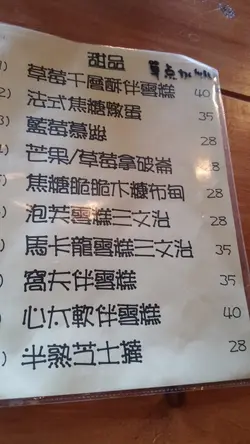 甜品 單点
1) 草莓千層酥伴雪糕 40
2) 法式焦糖燉蛋 35
3) 藍莓慕絲 28
4) 芒果/草莓拿破崙 28
5) 焦糖脆脆木糠布甸 28
泡芙雪糕三文治 28
馬卡龍雪糕三文治 35
窩夫伴雪糕 35
心太軟伴雪糕 40
半熟芝士撻 28